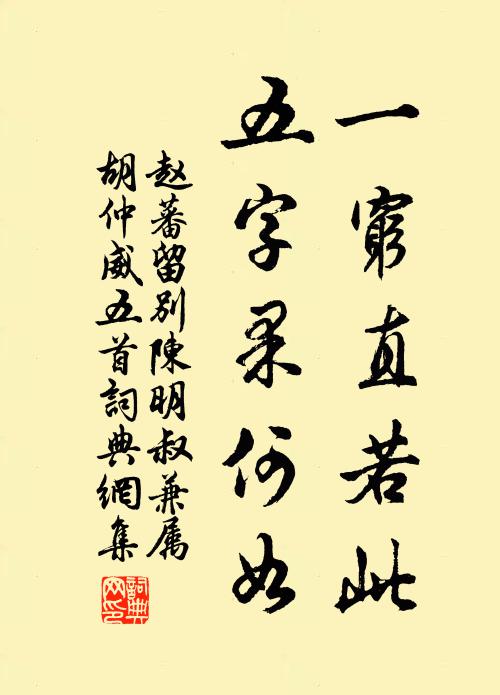 一窮直若此
五字果何如
赵蕃留别陳明叔兼属
胡仲威五首詞典網集
詞典网印